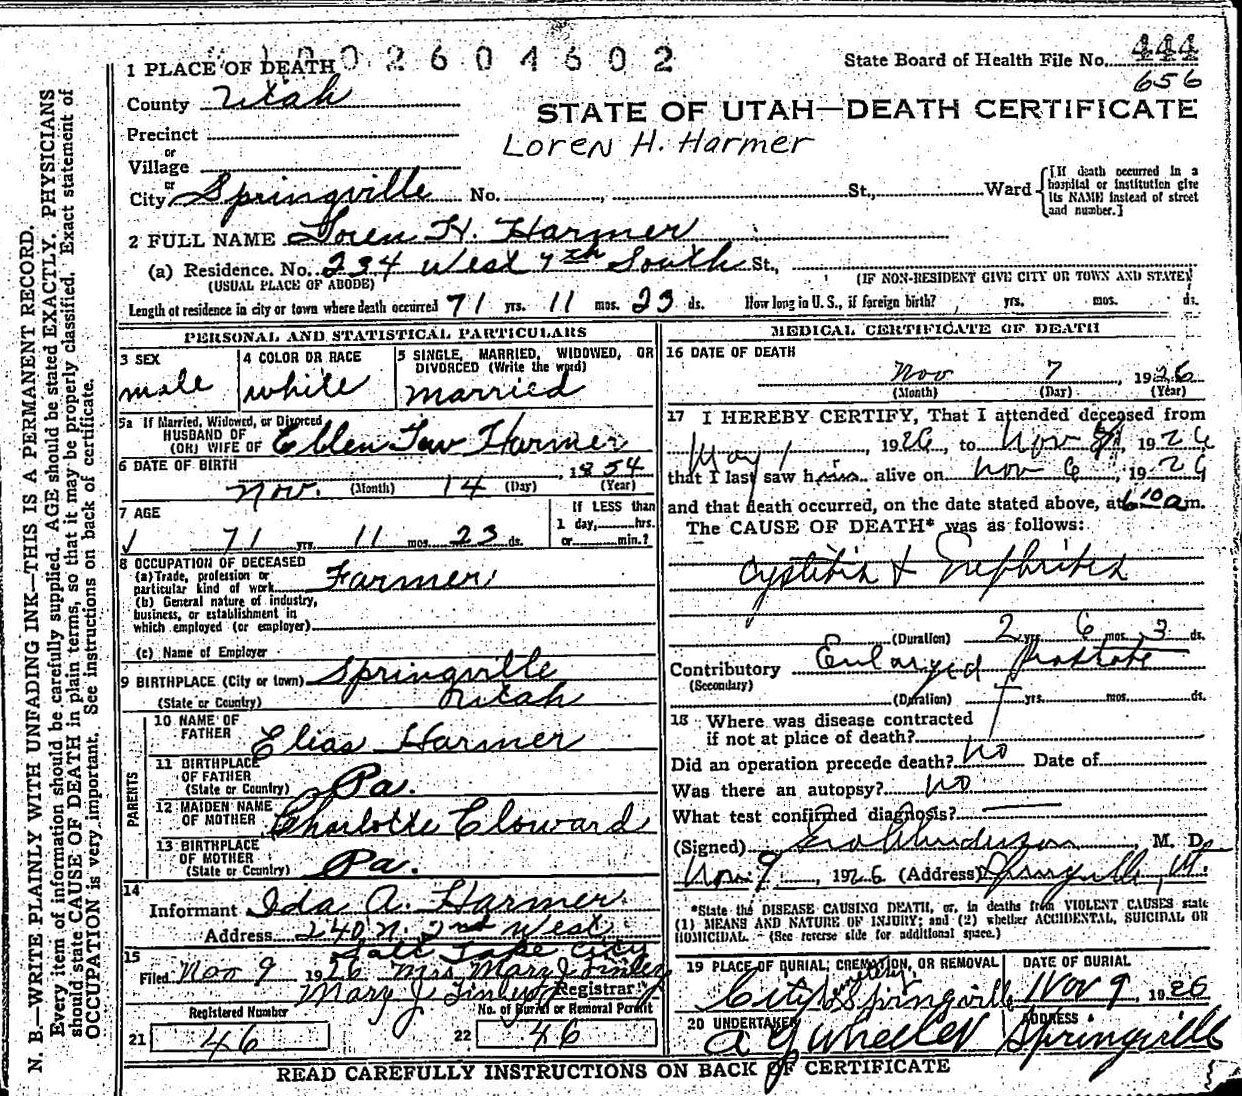 1 PLACE OF DEATH 002604602
State Board of Health File No. 444
656
County Utah
STATE OF UTAH—DEATH CERTIFICATE
Loren H. Harmer
Precinct
or
Village
or
City Springville No. St., Ward
[If death occurred in a hospital or institution give its NAME instead of street and number.]
2 FULL NAME Loren H. Harmer
(a) Residence. No. 234 West 7th South St.,
(USUAL PLACE OF ABODE) (IF NON-RESIDENT GIVE CITY OR TOWN AND STATE)
Length of residence in city or town where death occurred 71 yrs. 11 mos. 23 ds. How long in U. S., if foreign birth? yrs. mos. ds.
PERSONAL AND STATISTICAL PARTICULARS
3 SEX
male
4 COLOR OR RACE
white
5 SINGLE, MARRIED, WIDOWED, OR DIVORCED (Write the word)
married
5a If Married, Widowed, or Divorced
HUSBAND OF
(OR) WIFE OF Ellen Tew Harmer
6 DATE OF BIRTH
Nov. (Month) 14 (Day) 1854 (Year)
7 AGE
71 yrs. 11 mos. 23 ds.
If LESS than
1 day, hrs.
or min.?
8 OCCUPATION OF DECEASED
(a) Trade, profession or
particular kind of work Farmer
(b) General nature of industry,
business, or establishment in
which employed (or employer)
(c) Name of Employer
9 BIRTHPLACE (City or town) Springville
(State or Country) Utah
PARENTS
10 NAME OF
FATHER Elias Harmer
11 BIRTHPLACE
OF FATHER
(State or Country) Pa.
12 MAIDEN NAME
OF MOTHER Charlotte Cloward
13 BIRTHPLACE
OF MOTHER
(State or Country) Pa.
14
Informant Ida A. Harmer
Address 240 N. 2nd West
Salt Lake City
15
Filed Nov 9 1926 Mrs Mary J Finley
Mary J Finley Registrar
Registered Number
21 46
No. of Burial or Removal Permit
22 46
MEDICAL CERTIFICATE OF DEATH
16 DATE OF DEATH
Nov 7, 1926
(Month) (Day) (Year)
17 I HEREBY CERTIFY, That I attended deceased from
May 1, 1926, to Nov 7, 1926
that I last saw him alive on Nov 6, 1926
and that death occurred, on the date stated above, at 6 10 a m.
The CAUSE OF DEATH* was as follows:
Cystitis & Nephritis
(Duration) 2 yrs. 6 mos. 3 ds.
Contributory Enlarged Prostate
(Secondary)
(Duration) yrs. mos. ds.
18 Where was disease contracted
if not at place of death?
Did an operation precede death? no Date of
Was there an autopsy? no
What test confirmed diagnosis?
(Signed) M. D.
Nov 9, 1926 (Address) Springville, Ut.
*State the DISEASE CAUSING DEATH, or, in deaths from VIOLENT CAUSES state
(1) MEANS AND NATURE OF INJURY; and (2) whether ACCIDENTAL, SUICIDAL OR
HOMICIDAL. (See reverse side for additional space.)
19 PLACE OF BURIAL, CREMATION, OR REMOVAL
City Cemetery Springville
DATE OF BURIAL
Nov 9, 1926
20 UNDERTAKER
A Y Wheeler
ADDRESS
Springville
READ CAREFULLY INSTRUCTIONS ON BACK OF CERTIFICATE
N. B.—WRITE PLAINLY WITH UNFADING INK—THIS IS A PERMANENT RECORD.
Every item of information should be carefully supplied. AGE should be stated EXACTLY. PHYSICIANS
should state CAUSE OF DEATH in plain terms, so that it may be properly classified. Exact statement of
OCCUPATION is very important. See instructions on back of certificate.